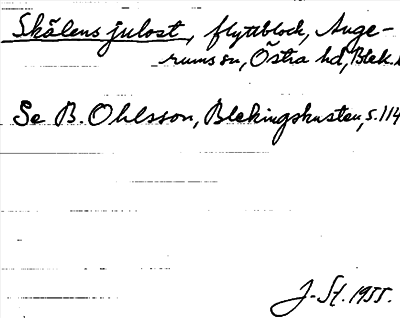 Skålens julost, flyttblock, Ange-
rums sn, Östra hd, Blek.
Se B. Ohlsson, Blekingskusten, s. 114
J-St. 1955.